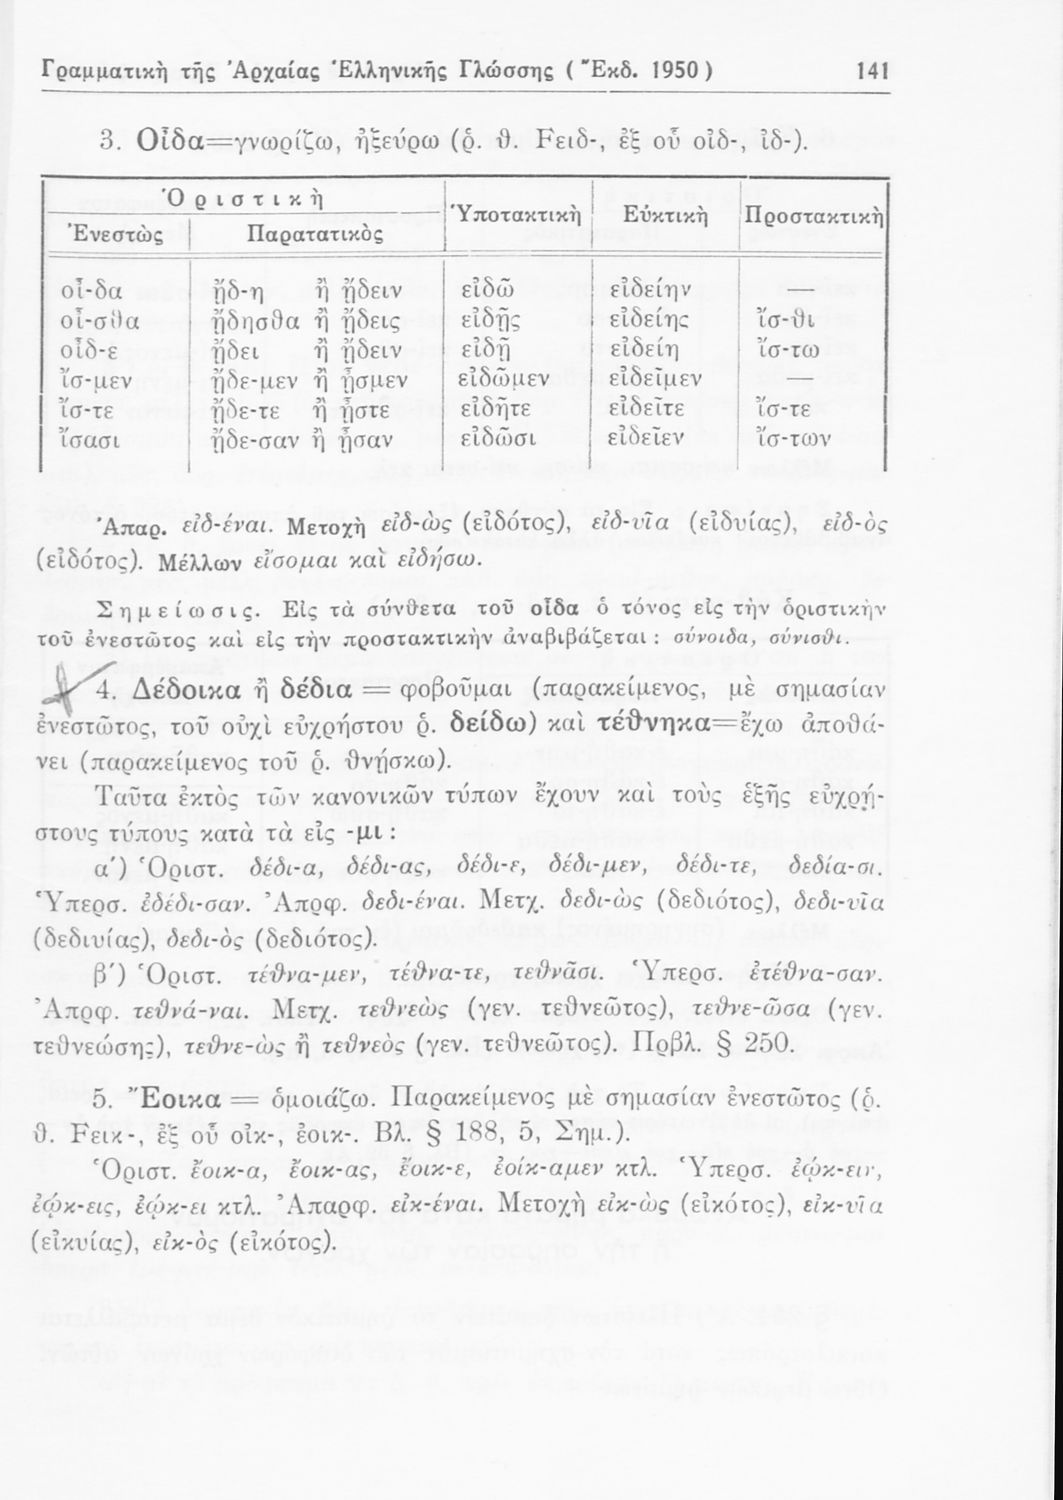 Γραμματικὴ τῆς Ἀρχαίας Ἑλληνικῆς Γλώσσης ( Ἔκδ. 1950 ) 141
3. Οἶδα=γνωρίζω, ἠξεύρω (ῥ. θ. Fειδ-, ἐξ οὗ οἰδ-, ἰδ-).
Ὁριστικὴ Ὑποτακτικὴ Εὐκτικὴ Προστακτικὴ
Ἐνεστὼς Παρατατικὸς
οἶ-δα ᾔδ-η ἢ ᾔδειν εἰδῶ εἰδείην
οἶ-σθα ᾔδησθα ἢ ᾔδεις εἰδῇς εἰδείης ἴσ-θι
οἶδ-ε ᾔδει ἢ ᾔδειν εἰδῇ εἰδείη ἴσ-τω
ἴσ-μεν ᾔδε-μεν ἢ ᾖσμεν εἰδῶμεν εἰδεῖμεν —
ἴσ-τε ᾔδε-τε ἢ ᾖστε εἰδῆτε εἰδεῖτε ἴσ-τε
ἴσασι ᾔδε-σαν ἢ ᾖσαν εἰδῶσι εἰδεῖεν ἴσ-των
Ἀπαρ. εἰδ-έναι. Μετοχὴ εἰδ-ὼς (εἰδότος), εἰδ-υῖα (εἰδυίας), εἰδ-ὸς
(εἰδότος). Μέλλων εἴσομαι καὶ εἰδήσω.
Σημείωσις. Εἰς τὰ σύνθετα τοῦ οἶδα ὁ τόνος εἰς τὴν ὁριστικὴν
τοῦ ἐνεστῶτος καὶ εἰς τὴν προστακτικὴν ἀναβιβάζεται : σύνοιδα, σύνισθι.
4. Δέδοικα ἢ δέδια = φοβοῦμαι (παρακείμενος, μὲ σημασίαν
ἐνεστῶτος, τοῦ οὐχὶ εὐχρήστου ῥ. δείδω) καὶ τέθνηκα=ἔχω ἀποθά-
νει (παρακείμενος τοῦ ῥ. θνῄσκω).
Ταῦτα ἐκτὸς τῶν κανονικῶν τύπων ἔχουν καὶ τοὺς ἑξῆς εὐχρή-
στους τύπους κατὰ τὰ εἰς -μι :
α΄) Ὁριστ. δέδι-α, δέδι-ας, δέδι-ε, δέδι-μεν, δέδι-τε, δεδία-σι.
Ὑπερσ. ἐδέδι-σαν. Ἀπρφ. δεδι-έναι. Μετχ. δεδι-ὼς (δεδιότος), δεδι-υῖα
(δεδιυίας), δεδι-ὸς (δεδιότος).
β΄) Ὁριστ. τέθνα-μεν, τέθνα-τε, τεθνᾶσι. Ὑπερσ. ἐτέθνα-σαν.
Ἀπρφ. τεθνά-ναι. Μετχ. τεθνεὼς (γεν. τεθνεῶτος), τεθνε-ῶσα (γεν.
τεθνεώσης), τεθνε-ὼς ἢ τεθνεὸς (γεν. τεθνεῶτος). Πρβλ. § 250.
5. Ἔοικα = ὁμοιάζω. Παρακείμενος μὲ σημασίαν ἐνεστῶτος (ῥ.
θ. Fεικ-, ἐξ οὗ οἰκ-, ἐοικ-. Βλ. § 188, 5, Σημ.).
Ὁριστ. ἔοικ-α, ἔοικ-ας, ἔοικ-ε, ἐοίκ-αμεν κτλ. Ὑπερσ. ἐῴκ-ειν,
ἐῴκ-εις, ἐῴκ-ει κτλ. Ἀπαρφ. εἰκ-έναι. Μετοχὴ εἰκ-ὼς (εἰκότος), εἰκ-υῖα
(εἰκυίας), εἰκ-ὸς (εἰκότος).